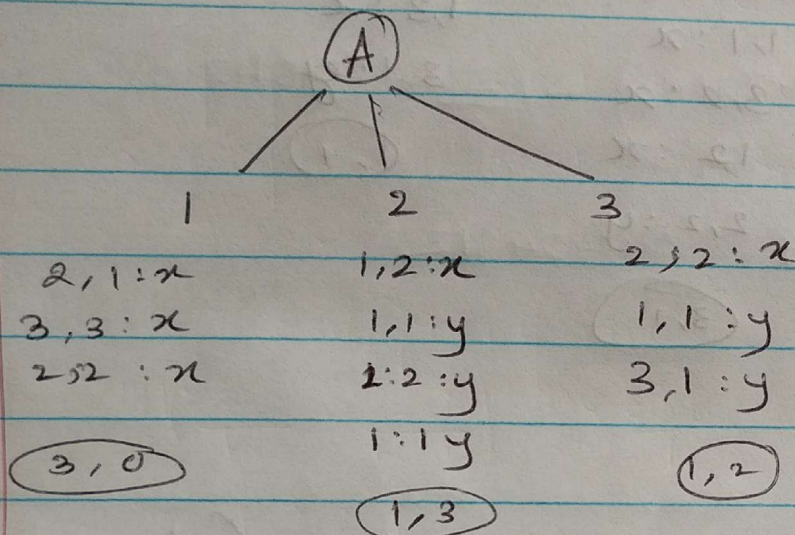 A
1 2 3
2,1:x
3,3:x
2,2:x
3,0
1,2:x
1,1:y
1:2:y
1:1y
1,3
2,2:x
1,1:y
3,1:y
1,2